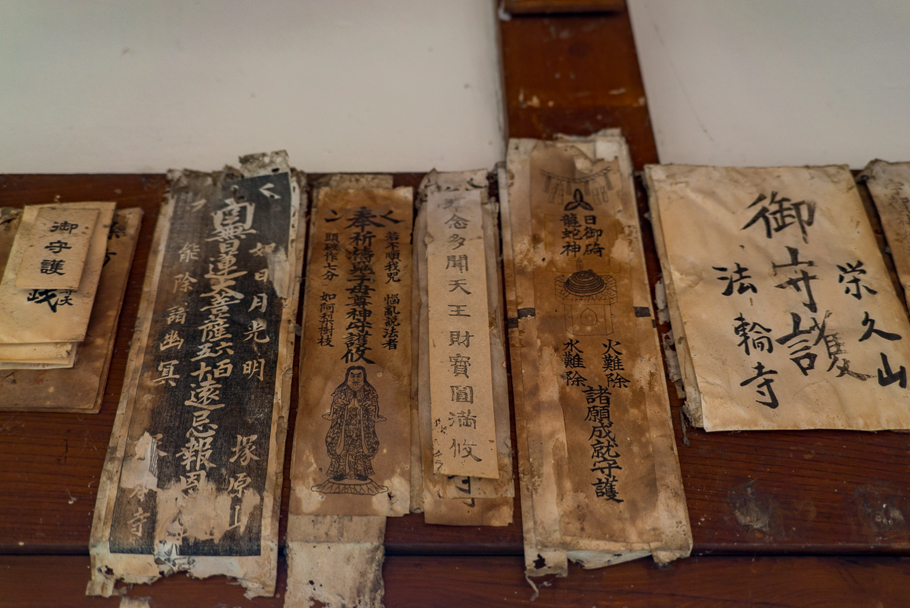 栄久山
御守護
法輪寺
日御碕
龍蛇神
火難除
水難除
諸願成就守護
念多聞天王財寶圓満攸
若不順我咒 惱亂説法者
奉祈禱鬼子母尊神守護攸
頭破作七分 如阿梨樹枝
如日月光明 塚原山
日蓮大菩薩 遠忌報恩
能除諸幽冥 本寺
御守護